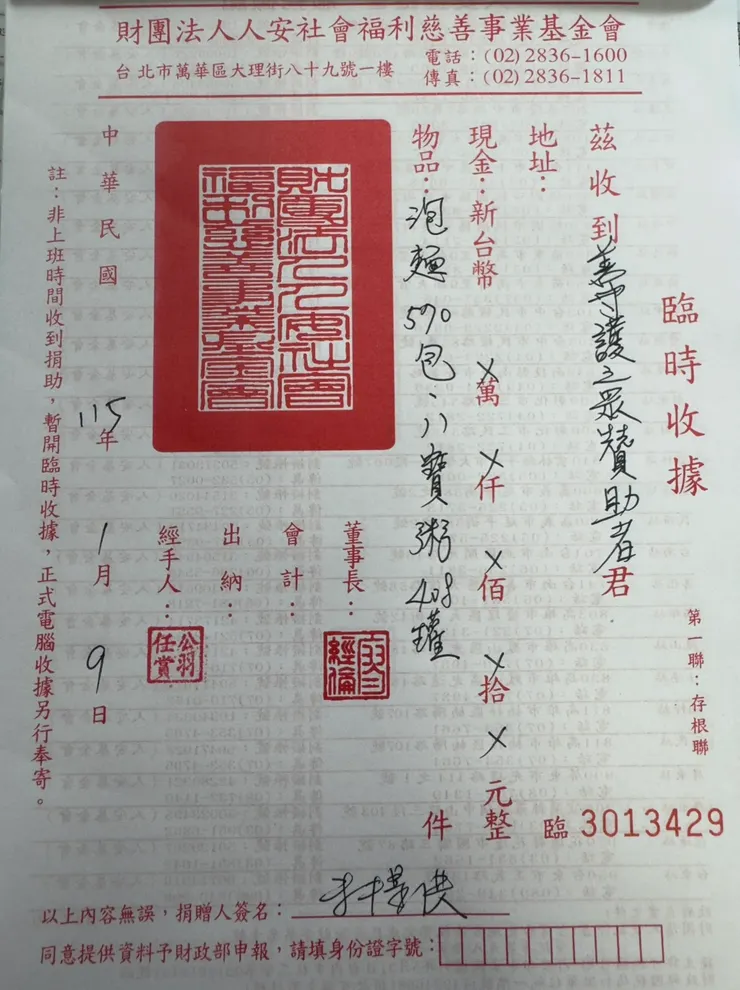 財團法人人安社會福利慈善事業基金會
台北市萬華區大理街八十九號一樓
電話：(02) 2836-1600
傳真：(02) 2836-1811
臨時收據
第一聯：存根聯
臨 3013429
茲收到 護之眾贊助者 君
地址：
現金：新台幣 X 萬 X 仟 X 佰 X 拾 X 元整
物品：泡麵590包、八寶粥408罐 件
董事長：
會計：
出納：
經手人：
公羽任賞
財團法人人安社會福利慈善事業基金會
中華民國 115 年 1 月 9 日
註：非上班時間收到捐助，暫開臨時收據，正式電腦收據另行奉寄。
以上內容無誤，捐贈人簽名：
同意提供資料予財政部申報，請填身份證字號：